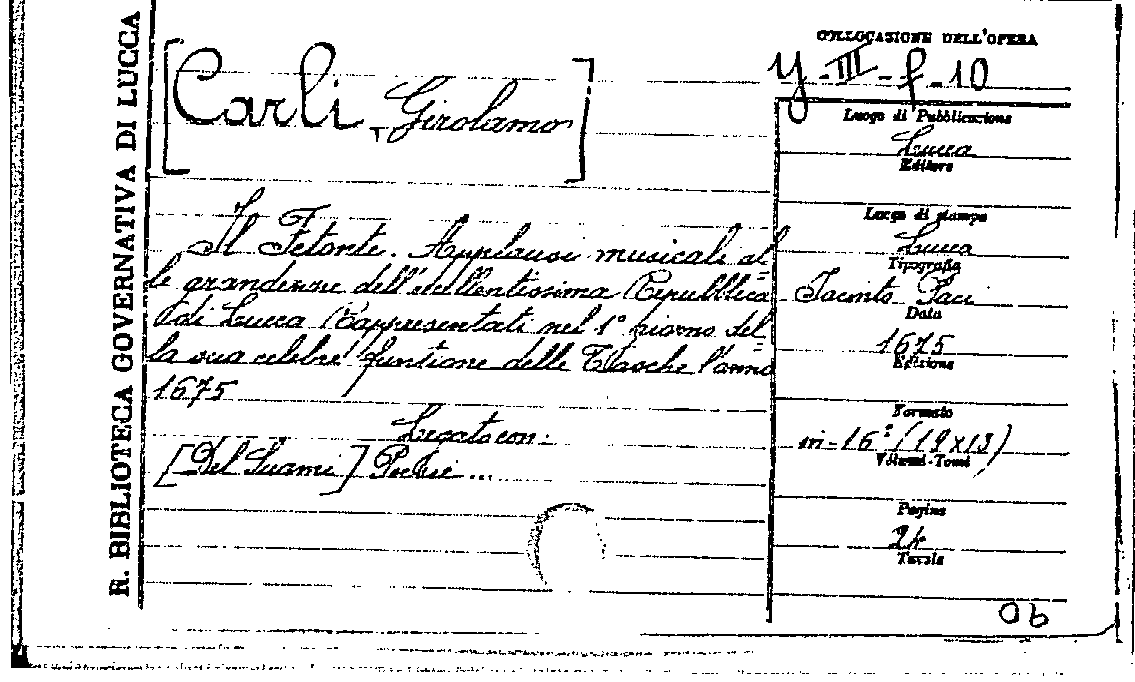 R. BIBLIOTECA GOVERNATIVA DI LUCCA
[Carli, Girolamo]
Il Fetonte. Applausi musicali al=
le grandezze dell'eccellentissima Repubblica
di Lucca Rappresentati nel 1° giorno del=
la sua celebre funtione delle Tasche l'anno
1675
Legato con:
[Del Suami] Poesie ...
COLLOCASIONE DELL'OPERA
y - III - f - 10
Luogo di Pubblicazione
Lucca
Editore
Luogo di stampa
Lucca
Tipografia
Iacinto Paci
Data
1675
Edizione
Formato
in-16° (19x13)
Volumi-Tomi
Pagine
24
Tavole